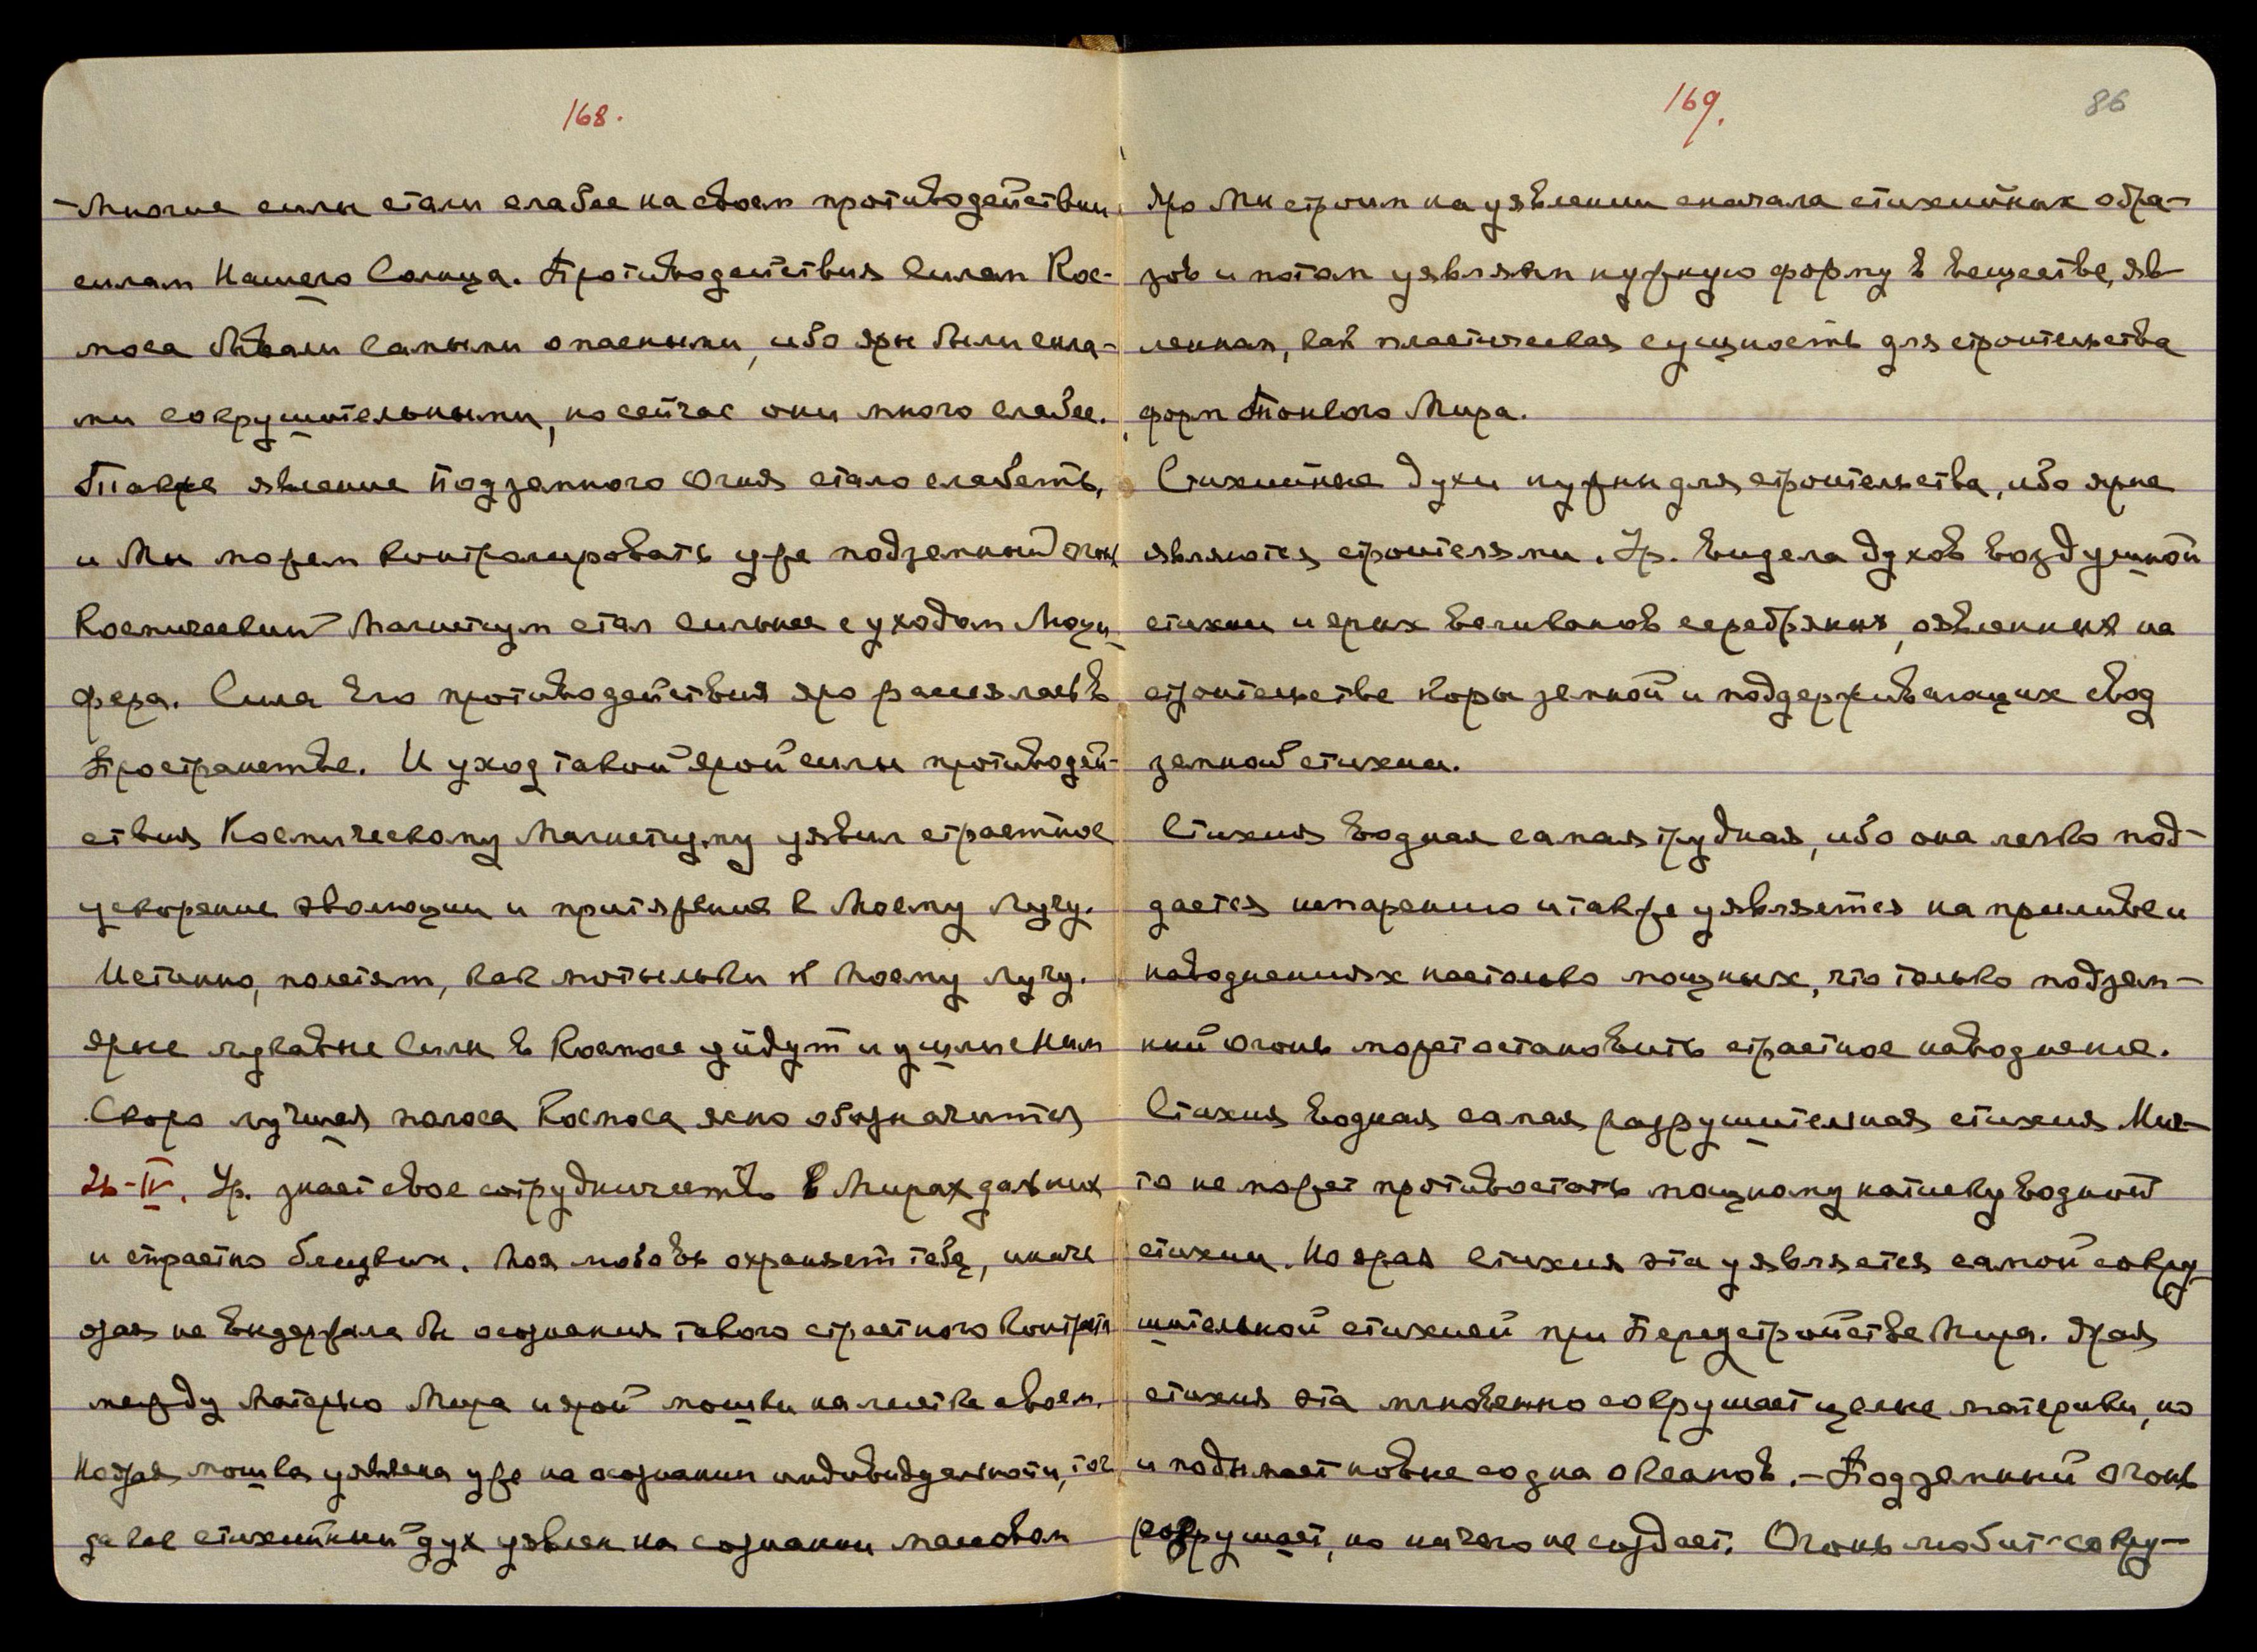 168.
-Многие силы стали слабее на своем противодействии
силам Нашего Солнца. Противодействия Силам Кос-
моса бывали самыми опасными, ибо яры были сила-
ми сокрушительными, но сейчас они много слабее.
Также явление Подземного Огня стало слабеть,
и Мы можем контролировать уже подземный огнь
Космический Магнетизм стал сильнее с уходом Люци-
фера. Сила Его противодействия яро рассеялась в
Пространстве. И уход такой ярой силы противодей-
ствия Космическому Магнетизму уявил страстное
ускорение эволюции и притяжение к Моему Лучу.
Истинно, полетят, как мотыльки к Моему Лучу.
Ярые лукавые Силы в Космосе уйдут и
Скоро лучшая полоса Космоса ясно обозначится
26-IV. Ур. знает свое сотрудничество в Мирах дальних
и страстно близких. Моя любовь охраняет тебя, иначе
язая не выдержала бы осознания такого страстного контраста
между Матерью Мира и ярой мошки на листке своем.
Но ярая мошка уявлена уже на осознании индивидуальности, тог-
да как стихийный дух уявлен на сознании массовом
169.
86
Яро Мы строим на уявлении сначала стихийных обра-
зов и потом уявляем нужную форму в веществе, яв-
ленная, как пластическая сущность для строительства
форм Тонкого Мира.
Стихийные духи нужны для строительства, ибо ярые
являются строителями. Ур. видела духов воздушной
стихии и ярых великанов серебряных, оявленных на
строительстве коры земной и поддерживающих свод
земной стихии.
Стихия водная самая трудная, ибо она легко под-
дается испарению и также уявляется на приливе и
наводнениях настолько мощных, что только подзем-
ный огонь может остановить страстное наводнение.
Стихия водная самая разрушительная стихия. Ник-
то не может противостоять мощному натиску водной
стихии. Но ярая стихия эта уявляется самой сокру-
шительной стихией при Переустройстве Мира. Ярая
стихия эта мгновенно сокрушает целые материки, но
и подымает новые со дна океанов.-Подземный огонь
разрушает, но ничего не создает. Огонь любит сокру-